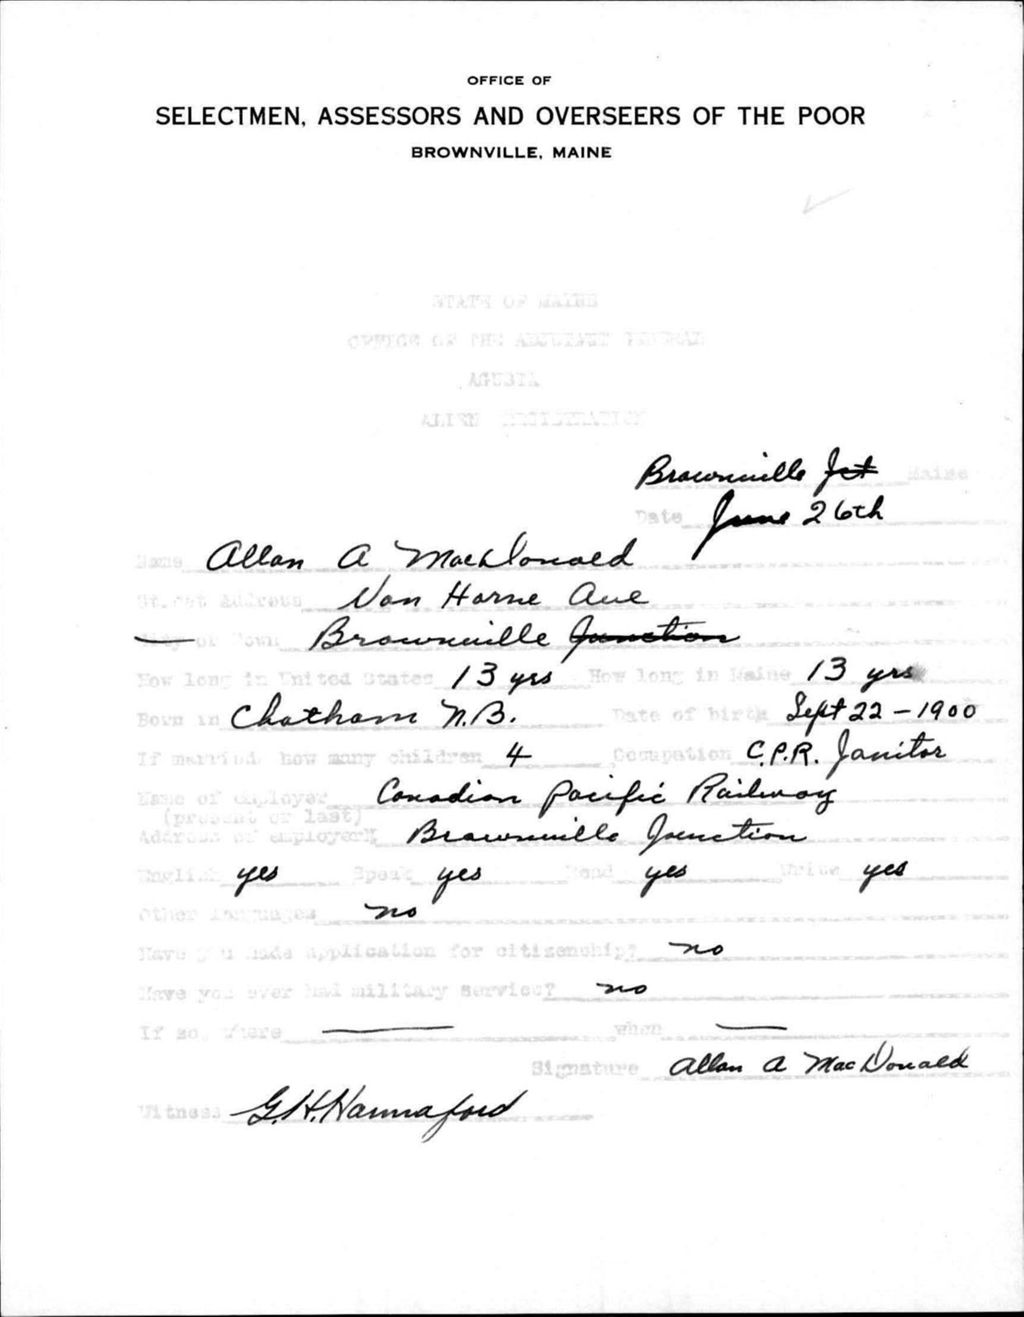 OFFICE OF
SELECTMEN, ASSESSORS AND OVERSEERS OF THE POOR
BROWNVILLE, MAINE
STATE OF MAINE
OFFICE OF THE ADJUTANT GENERAL
AGUSTA
ALIEN REGISTRATION
Brownville Jct Maine
Date June 26th
Name Allan A MacDonald
Street Address Van Horne Ave
City or Town Brownville Junction
How long in United States 13 yrs How long in Maine 13 yrs
Born in Chatham N.B. Date of birth Sept 22 - 1900
If married, how many children 4 Occupation C.P.R. Janitor
Name of employer Canadian Pacific Railway
(present or last)
Address of employer Brownville Junction
English yes Speak yes Read yes Write yes
Other languages no
Have you made application for citizenship? no
Have you ever had military service? no
If so, where when
Signature Allan A MacDonald
Witness G.H. Hannaford